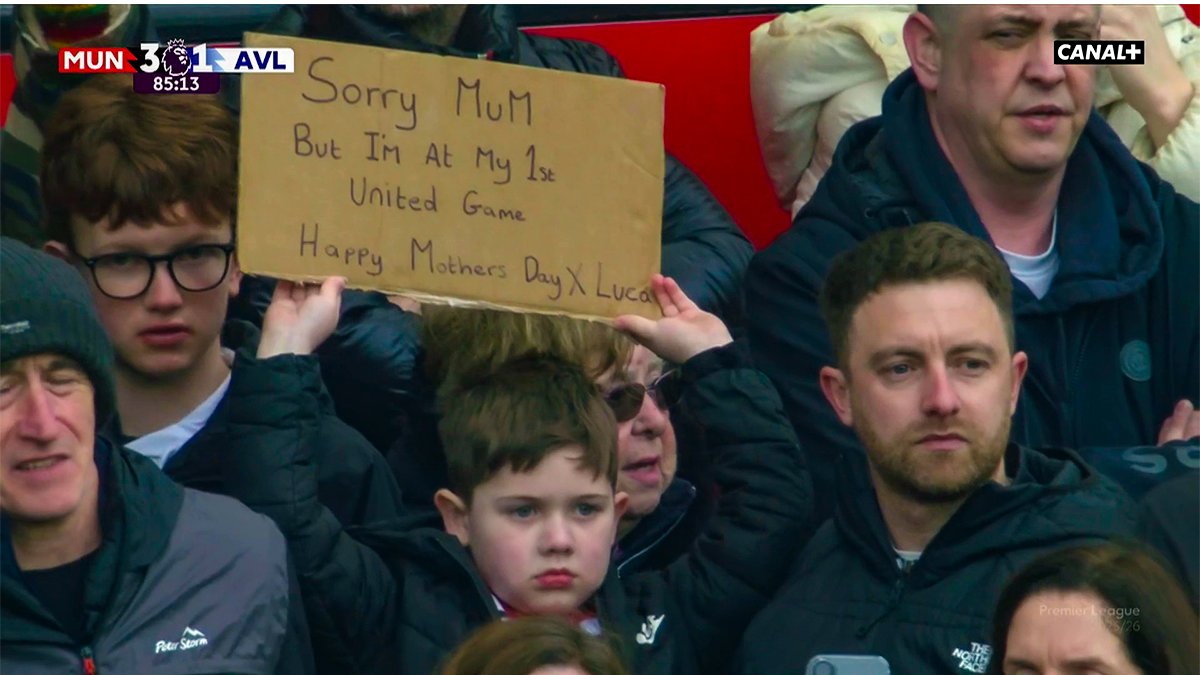 MUN 3 1 AVL
85:13
CANAL+
Sorry MuM
But I'm At My 1st
United Game
Happy Mothers Day X Luca
Peter Storm
THE
NORTH
FACE
Premier League
25/26